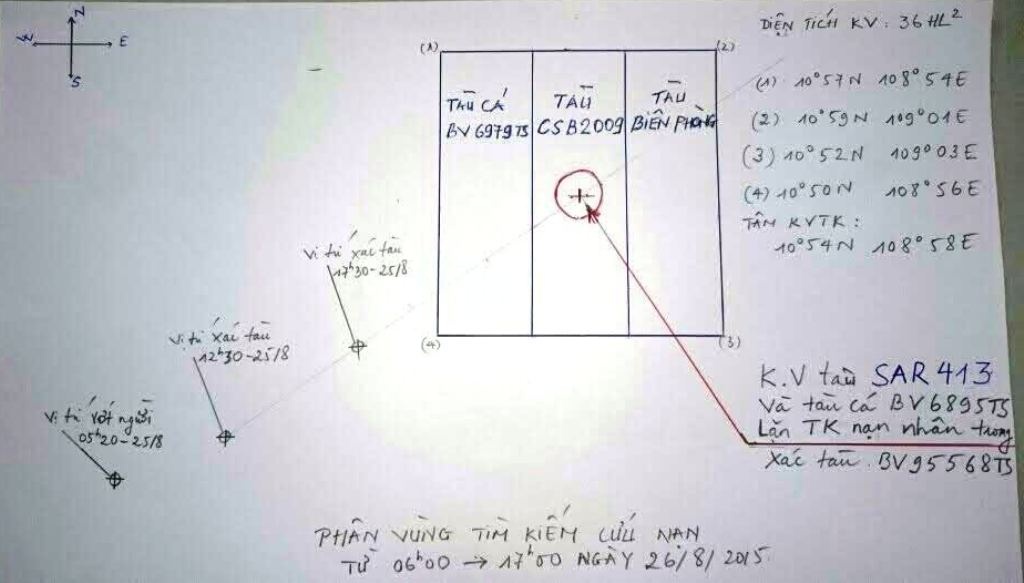 N
W E
S
(1)
(2)
TÀU CÁ
BV 6979 TS
TÀU
CSB2009
TÀU
BIÊN PHÒNG
(4)
(3)
DIỆN TÍCH KV: 36 HL²
(1) 10°57N 108°54E
(2) 10°59N 109°01E
(3) 10°52N 109°03E
(4) 10°50N 108°56E
TÂM KVTK:
10°54N 108°58E
Vị trí xác tàu
17h30-25/8
Vị trí xác tàu
12h30-25/8
Vị trí vớt người
05h20-25/8
K.V tàu SAR 413
Và tàu cá BV6895TS
Lặn TK nạn nhân trong
Xác tàu. BV95568TS
PHÂN VÙNG TÌM KIẾM CỨU NẠN
TỪ 06h00 → 17h00 NGÀY 26/8/2015.